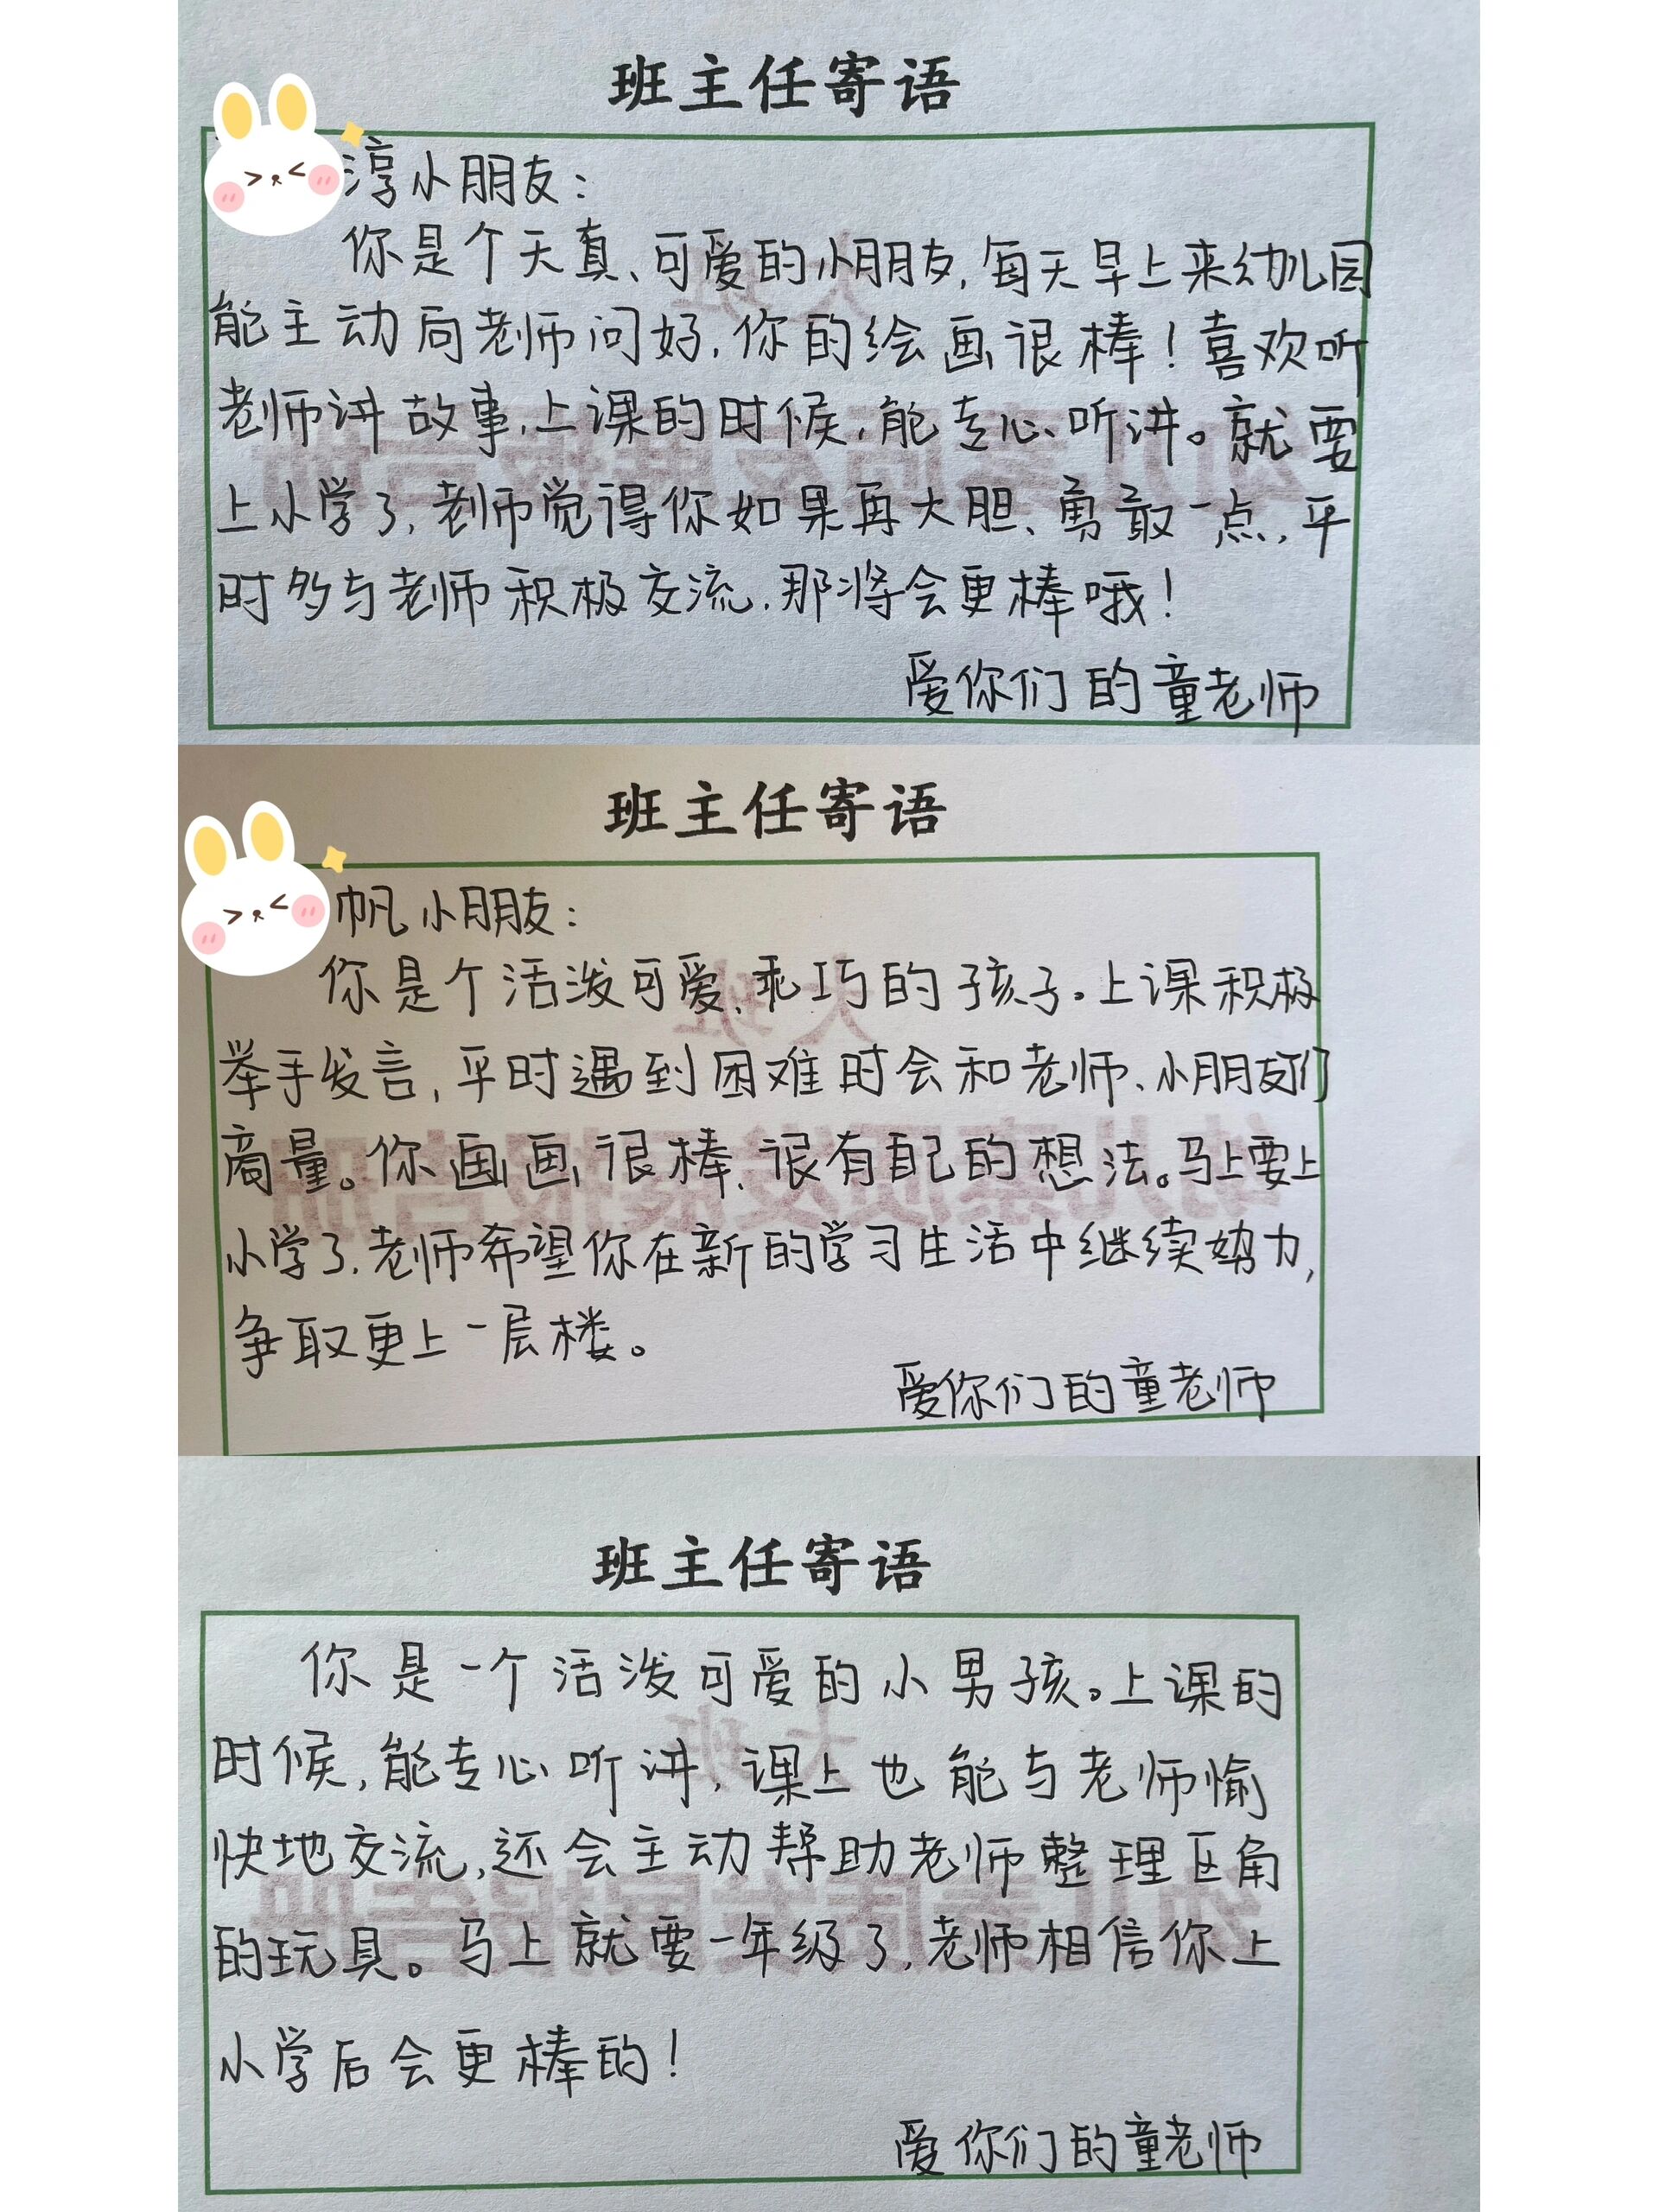 班主任寄语
淳小朋友：
你是个天真、可爱的小朋友,每天早上来幼儿园
能主动向老师问好,你的绘画很棒！喜欢听
老师讲故事,上课的时候,能专心听讲。就要
上小学了,老师觉得你如果再大胆、勇敢一点,平
时多与老师积极交流,那将会更棒哦！
爱你们的童老师
班主任寄语
帆小朋友：
你是个活泼可爱、乖巧的孩子。上课积极
举手发言,平时遇到困难时会和老师、小朋友们
商量。你画画很棒、很有自己的想法。马上要上
小学了,老师希望你在新的学习生活中继续努力,
争取更上一层楼。
爱你们的童老师
班主任寄语
你是一个活泼可爱的小男孩。上课的
时候,能专心听讲,课上也能与老师愉
快地交流,还会主动帮助老师整理区角
的玩具。马上就要一年级了,老师相信你上
小学后会更棒的！
爱你们的童老师